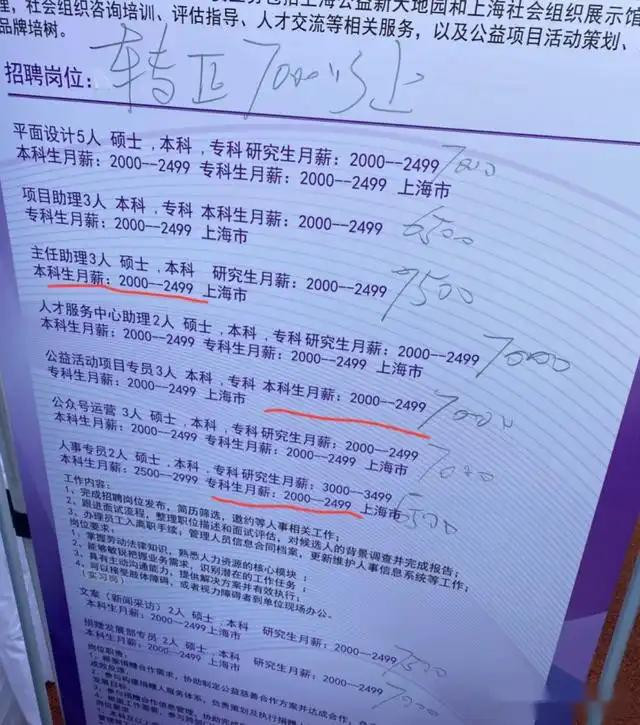 理，社会组织咨询培训、评估指导、人才交流等相关服务，以及公益项目活动策划、
品牌培树。
招聘岗位：转正7000以上
平面设计5人 硕士，本科，专科 研究生月薪：2000--2499 7000
本科生月薪：2000--2499 专科生月薪：2000--2499 上海市
项目助理3人 本科，专科 本科生月薪：2000--2499 6500
专科生月薪：2000--2499 上海市
主任助理3人 硕士，本科 研究生月薪：2000--2499 7500
本科生月薪：2000--2499 上海市
人才服务中心助理2人 硕士，本科，专科 研究生月薪：2000--2499 7000
本科生月薪：2000--2499 专科生月薪：2000--2499 上海市
公益活动项目专员3人 本科，专科 本科生月薪：2000--2499 7000
专科生月薪：2000--2499 上海市
公众号运营 3人 硕士，本科，专科 研究生月薪：2000--2499 7000
本科生月薪：2000--2499 专科生月薪：2000--2499 上海市
人事专员2人 硕士，本科，专科 研究生月薪：3000--3499
本科生月薪：2500--2999 专科生月薪：2000--2499 上海市 6500
工作内容：
1、完成招聘岗位发布，简历筛选，邀约等人事相关工作；
2、跟进面试流程，整理职位描述和面试评估，对候选人的背景调查并完成报告；
3、办理员工入离职手续，管理人员信息合同档案，更新维护人事信息系统等工作；
岗位要求：
1、掌握劳动法律知识，熟悉人力资源的核心模块；
2、能够敏锐把握业务需求，识别潜在的工作任务；
3、具有主动沟通能力，提供解决方案并有效执行；
4、可以接受肢体障碍，或者视力障碍者到单位现场办公。
（实习岗）
文案（新闻采访）2人 硕士，本科 研究生月薪：2000--2499 7500
本科生月薪：2000--2499 上海市
捐赠发展部专员 2人 硕士，本科 研究生月薪：2000--2499 7000
本科生月薪：2000--2499 上海市
岗位职责：